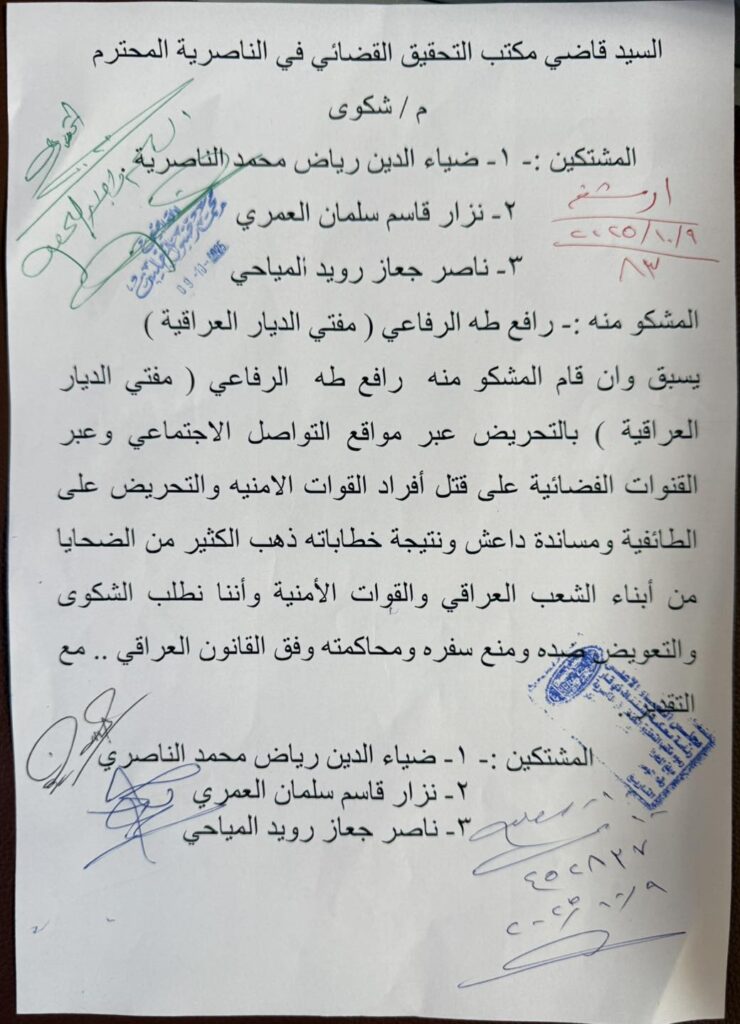 السيد قاضي مكتب التحقيق القضائي في الناصرية المحترم
م / شكوى
المشتكين :- ١- ضياء الدين رياض محمد الناصرية
٢- نزار قاسم سلمان العمري
٣- ناصر جعاز رويد المياحي
٢٠٢٥/١٠/٩
٨٣
09-10-2025
المشكو منه :- رافع طه الرفاعي ( مفتي الديار العراقية )
يسبق وان قام المشكو منه رافع طه الرفاعي ( مفتي الديار
العراقية ) بالتحريض عبر مواقع التواصل الاجتماعي وعبر
القنوات الفضائية على قتل أفراد القوات الامنيه والتحريض على
الطائفية ومساندة داعش ونتيجة خطاباته ذهب الكثير من الضحايا
من أبناء الشعب العراقي والقوات الأمنية وأننا نطلب الشكوى
والتعويض ضده ومنع سفره ومحاكمته وفق القانون العراقي .. مع
التقدير
المشتكين :- ١- ضياء الدين رياض محمد الناصري
٢- نزار قاسم سلمان العمري
٣- ناصر جعاز رويد المياحي
٢٠٢٥/١٠/٩